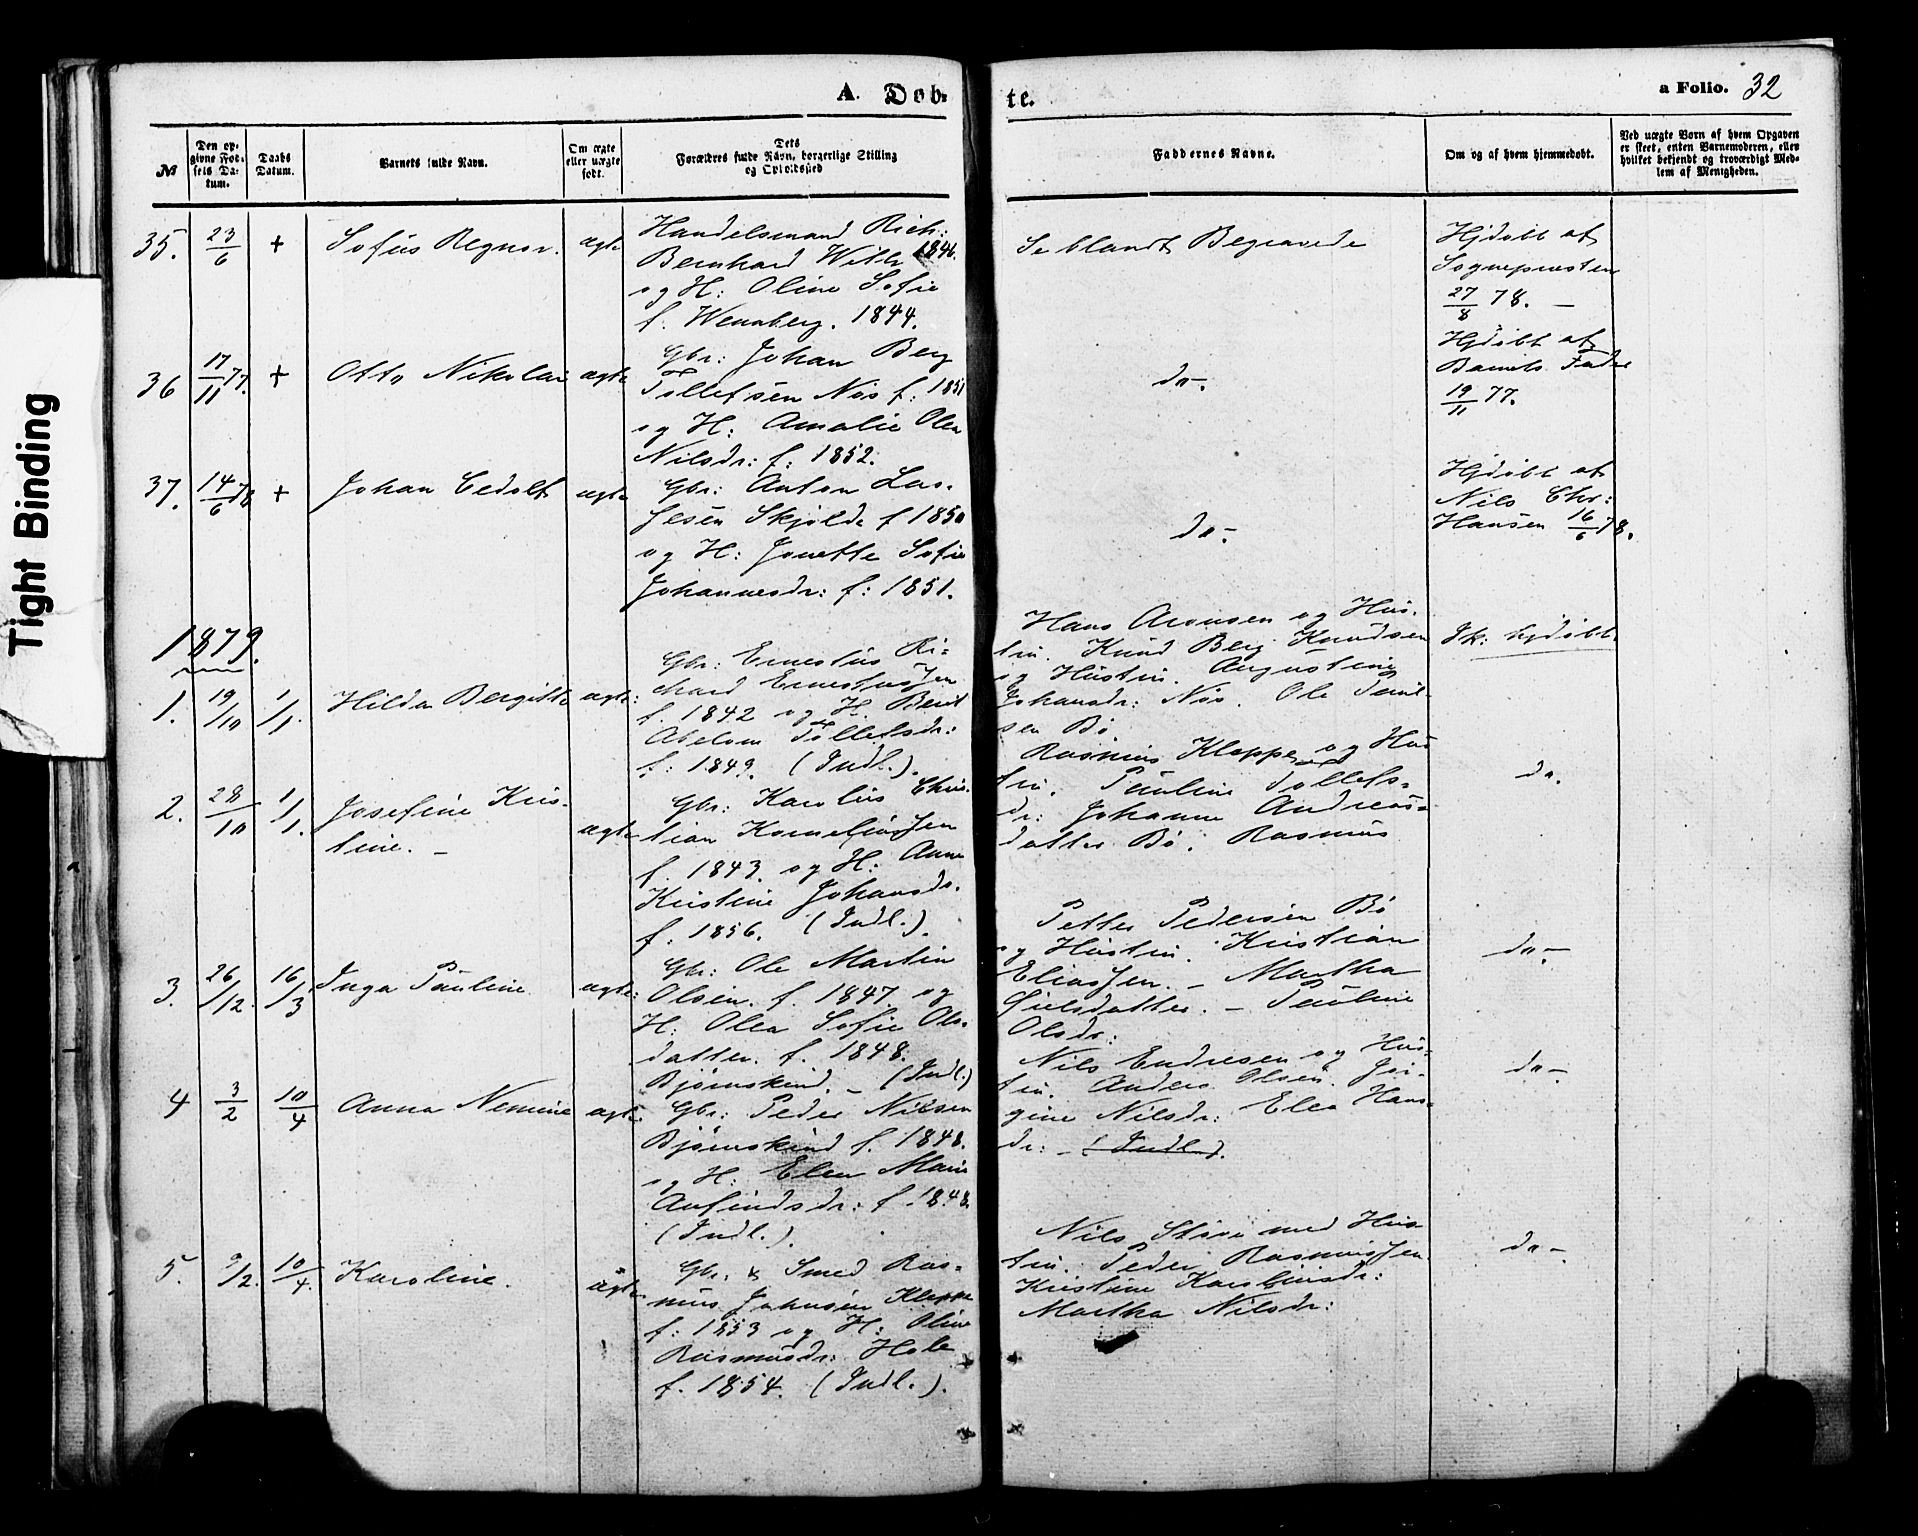 Tight Binding
A. Døb-
te.
a Folio. 32
№
Den op-
givne Fød-
sels Da-
tum.
Daabs
Datum.
Barnets fulde Navn.
Om ægte
eller uægte
født.
Dets
Forældres fulde Navn, borgerlige Stilling
og Opholdssted
Faddernes Navne.
Om og af hvem hjemmedøbt.
Ved uægte Børn af hvem Opgaven
er skeet, enten Barnemoderen, eller
hvilket bekjendt og troværdigt Med-
lem af Menigheden.
35. 23/6 + Sofus Regnor. ægte
Handelsmand Rich:
Bernhard With 1846.
og H: Oline Sofie
f. Wennberg. 1844.
Se blandt Begravede
Hjdøbt af
Sognepresten
27/8 78. —
36 17/11 77. + Otto Nikolai ægte
Gbr: Johan Berg
Tollefsen Nös f: 1851
og H: Amalie Olea
Nilsdr: f: 1852.
do-.
Hjdøbt af
Barnets Fader
19/11 77.
37. 14/6 78 + Johan Cedolf ægte
Gbr: Anton Las-
sesen Skjolde f 1850
og H: Jonette Sofie
Johannesdr: f: 1851.
do-.
Hjdøbt af
Nils Chr:
Hansen 16/6 78.
1879.
1. 19/10 1/1. Hilda Bergitte ægte:
Gbr: Ernestus Ri-
chard Ernestussen
f. 1842 og H. Berit
Abelone Tollefsdr:
f: 1849. (Indl.).
Hans Aronsen og Hus-
tru. Knud Berg Knudsen
og Hustru. Augustine
Johansdr: Nös. Ole Paul-
sen Bö.
Ik: hjdøbt.
2. 28/10 1/1. Josefine Kris-
tine. — ægte
Gbr: Karolius Chris-
tian Korneliussen
f. 1843. og H: Anne
Kristine Johansdr.
f: 1856. (Indl.).
Rasmus Kleppe og Hus
tru. Pauline Tollefs-
dr: Johanne Andreas-
datter Bö. Rasmus
do.
3. 26/12. 16/3 Inga Pauline. ægte:
Gbr: Ole Martin
Olsen. f. 1847. og
H: Olea Sofie Ols-
datter. f. 1848.
Bjørnskind. — (Indl.)
Petter Pedersen Bö
og Hustru. Kristian
Eliassen. — Martha
Eielsdatter. — Pauline
Olsdr:
do-.
4 3/2 10/4 Anna Nemine ægte
Gbr: Peder Nilsen
Bjørnskind f. 1848.
og H: Elen Marie
Anfindsdr: f. 1848.
(Indl.).
Nils Endresen og Hus-
tru. Anders Olsen. Jör-
gine Nilsdr: Elea Hans-
dr: — (Indl.).
do-
5. 9/2. 10/4. Karoline. ægte
Gbr. & Smed Ras-
mus Johnsen Kleppe
f: 1853 og H: Oline
Rasmusdr: Hole
f. 1854. (Indl.).
Nils Skive med Hus
tru. Peder Rasmussen
Kristine Karolinsdr:
Martha Nilsdr:
do-